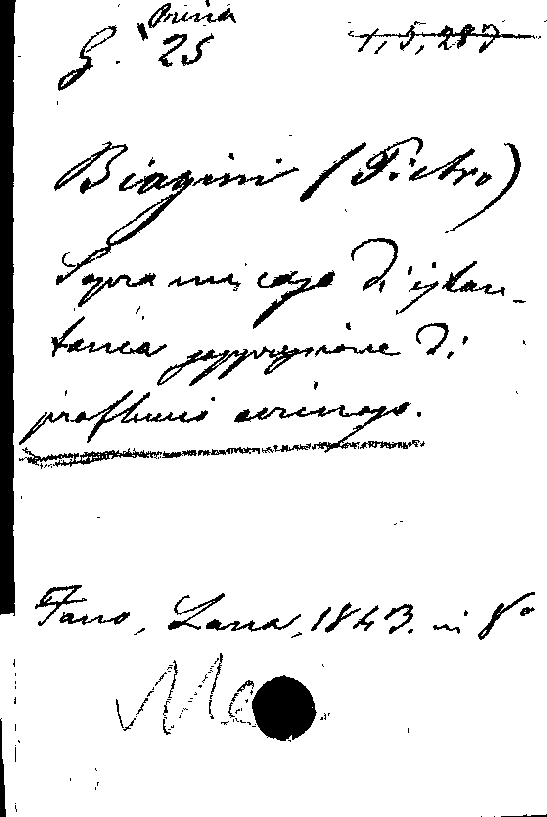 Busta
G. 25 1, 5, 287
Biagini (Pietro)
Sopra un caso di istan-
tanea soppressione di
profluvio orinoso.
Fano, Lana, 1843. in 8°